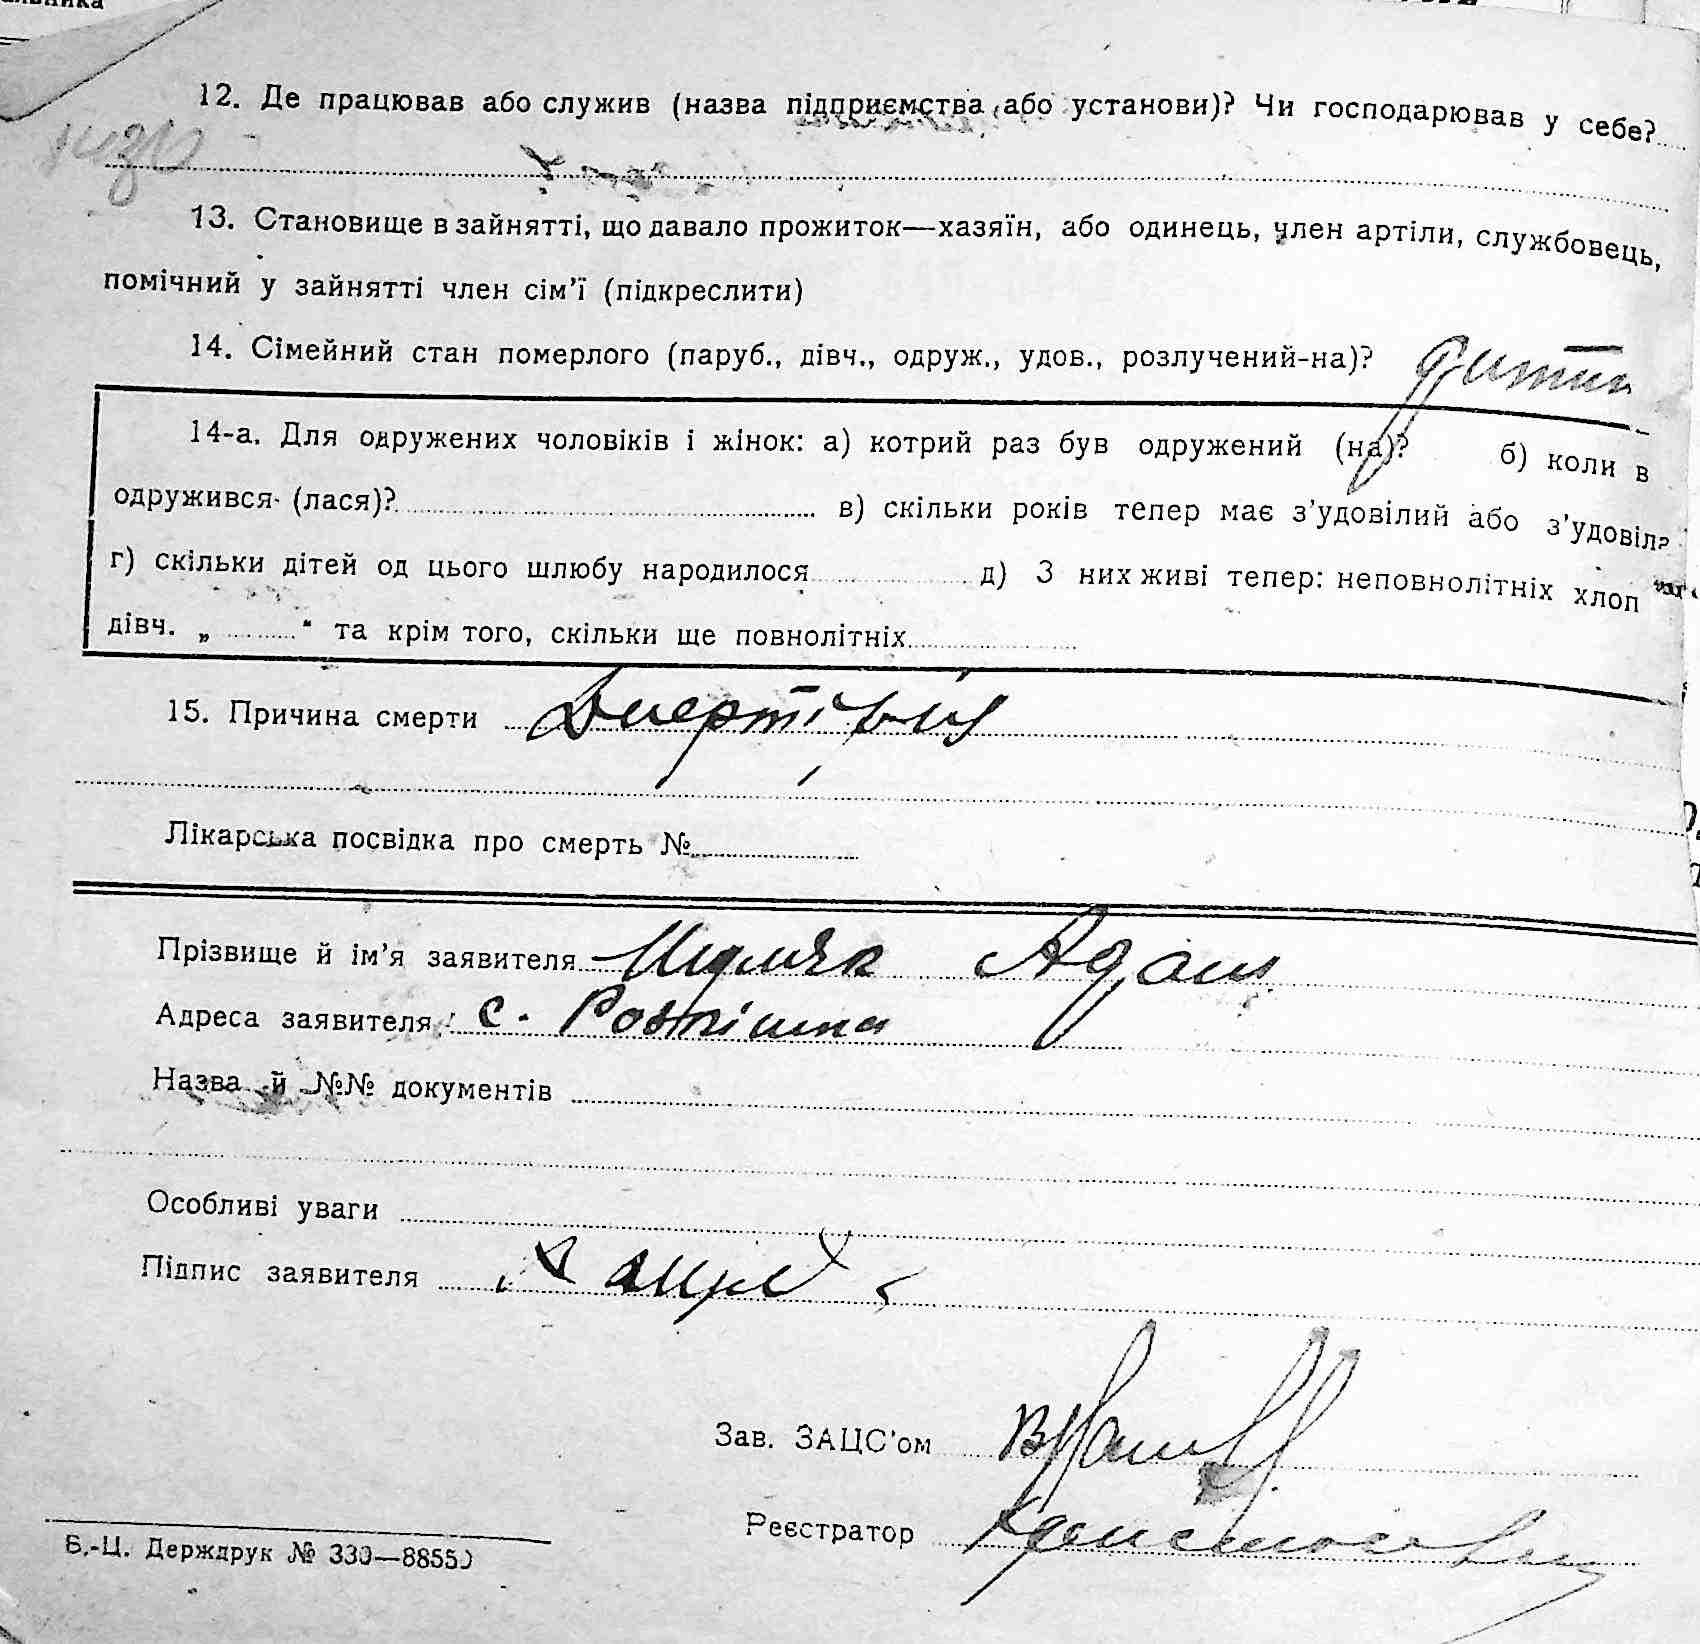 12. Де працював або служив (назва підприємства або установи)? Чи господарював у себе?
13. Становище в зайнятті, що давало прожиток—хазяїн, або одинець, член артіли, службовець,
помічний у зайнятті член сім'ї (підкреслити)
14. Сімейний стан померлого (паруб., дівч., одруж., удов., розлучений-на)? дитин
14-а. Для одружених чоловіків і жінок: а) котрий раз був одружений (на)? б) коли в
одружився (лася)? в) скільки років тепер має з'удовілий або з'удовіла
г) скільки дітей од цього шлюбу народилося д) З них живі тепер: неповнолітніх хлоп
дівч. „ “ та крім того, скільки ще повнолітніх
15. Причина смерти
Лікарська посвідка про смерть №
Прізвище й ім'я заявителя Адам
Адреса заявителя: с.
Назва й №№ документів
Особливі уваги
Підпис заявителя
Зав. ЗАЦС'ом
Реєстратор
Б.-Ц. Держдрук № 330—8855